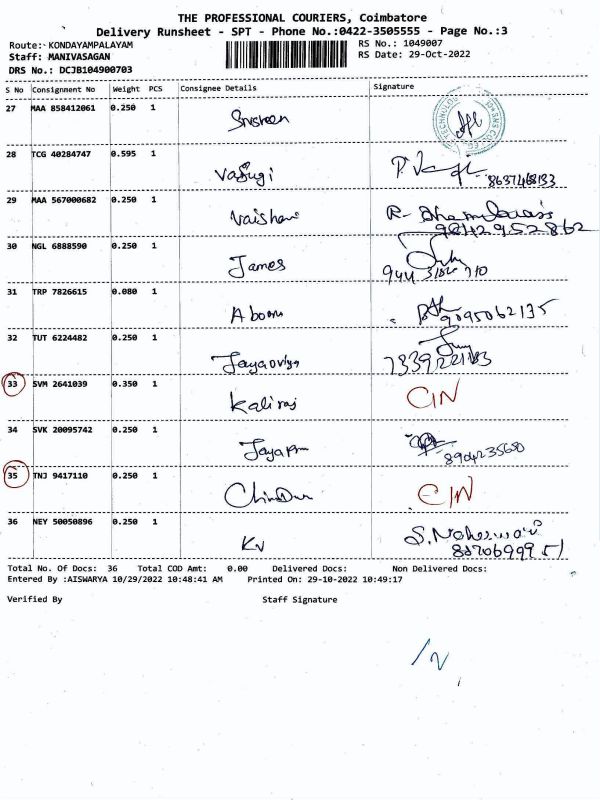 THE PROFESSIONAL COURIERS, Coimbatore
Delivery Runsheet - SPT - Phone No.:0422-3505555 - Page No.:3
Route:- KONDAYAMPALAYAM RS No.: 1049007
Staff: MANIVASAGAN RS Date: 29-Oct-2022
DRS No.: DCJB104900703
S No Consignment No Weight PCS Consignee Details Signature
27 MAA 858412061 0.250 1
28 TCG 40284747 0.595 1 Vasugi
29 MAA 567000682 0.250 1 Vaishnavi
9842952862
30 NGL 6888590 0.250 1 James
31 TRP 7826615 0.080 1 9095062135
32 TUT 6224482 0.250 1 Jayaoviya
33 SVM 2641039 0.350 1 Kaliraj CIN
34 SVK 20095742 0.250 1
35 TNJ 9417110 0.250 1 CIN
36 NEY 50050896 0.250 1 KV S. Maheswari
Total No. Of Docs: 36 Total COD Amt: 0.00 Delivered Docs: Non Delivered Docs:
Entered By :AISWARYA 10/29/2022 10:48:41 AM Printed On: 29-10-2022 10:49:17
Verified By Staff Signature